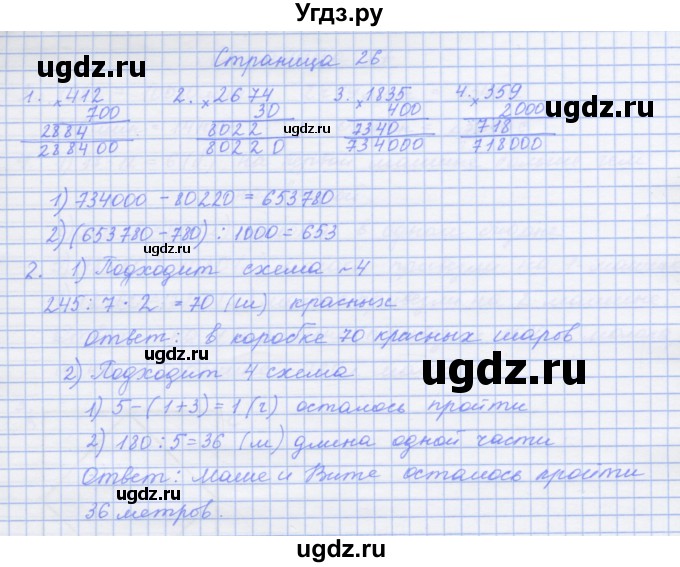 Угдз.ру
Страница 26
1. × 412 2. × 2674 3. × 1835 4. × 359
700 30 400 2000
2884 8022 7340 718
288400 80220 734000 718000
1) 734000 - 80220 = 653780
2) (653780 - 780) : 1000 = 653
2. 1) Подходит схема ~4
245 : 7 · 2 = 70 (ш) красных
Ответ: в коробке 70 красных шаров
2) Подходит 4 схема
1) 5 - (1 + 3) = 1 (г) осталось пройти
2) 180 : 5 = 36 (м) длина одной части
Ответ: Маше и Вите осталось пройти
36 метров.
ugdz.ru
ugdz.ru
ugdz.ru
ugdz.ru
ugdz.ru
ugdz.ru
ugdz.ru
ugdz.ru
ugdz.ru
ugdz.ru